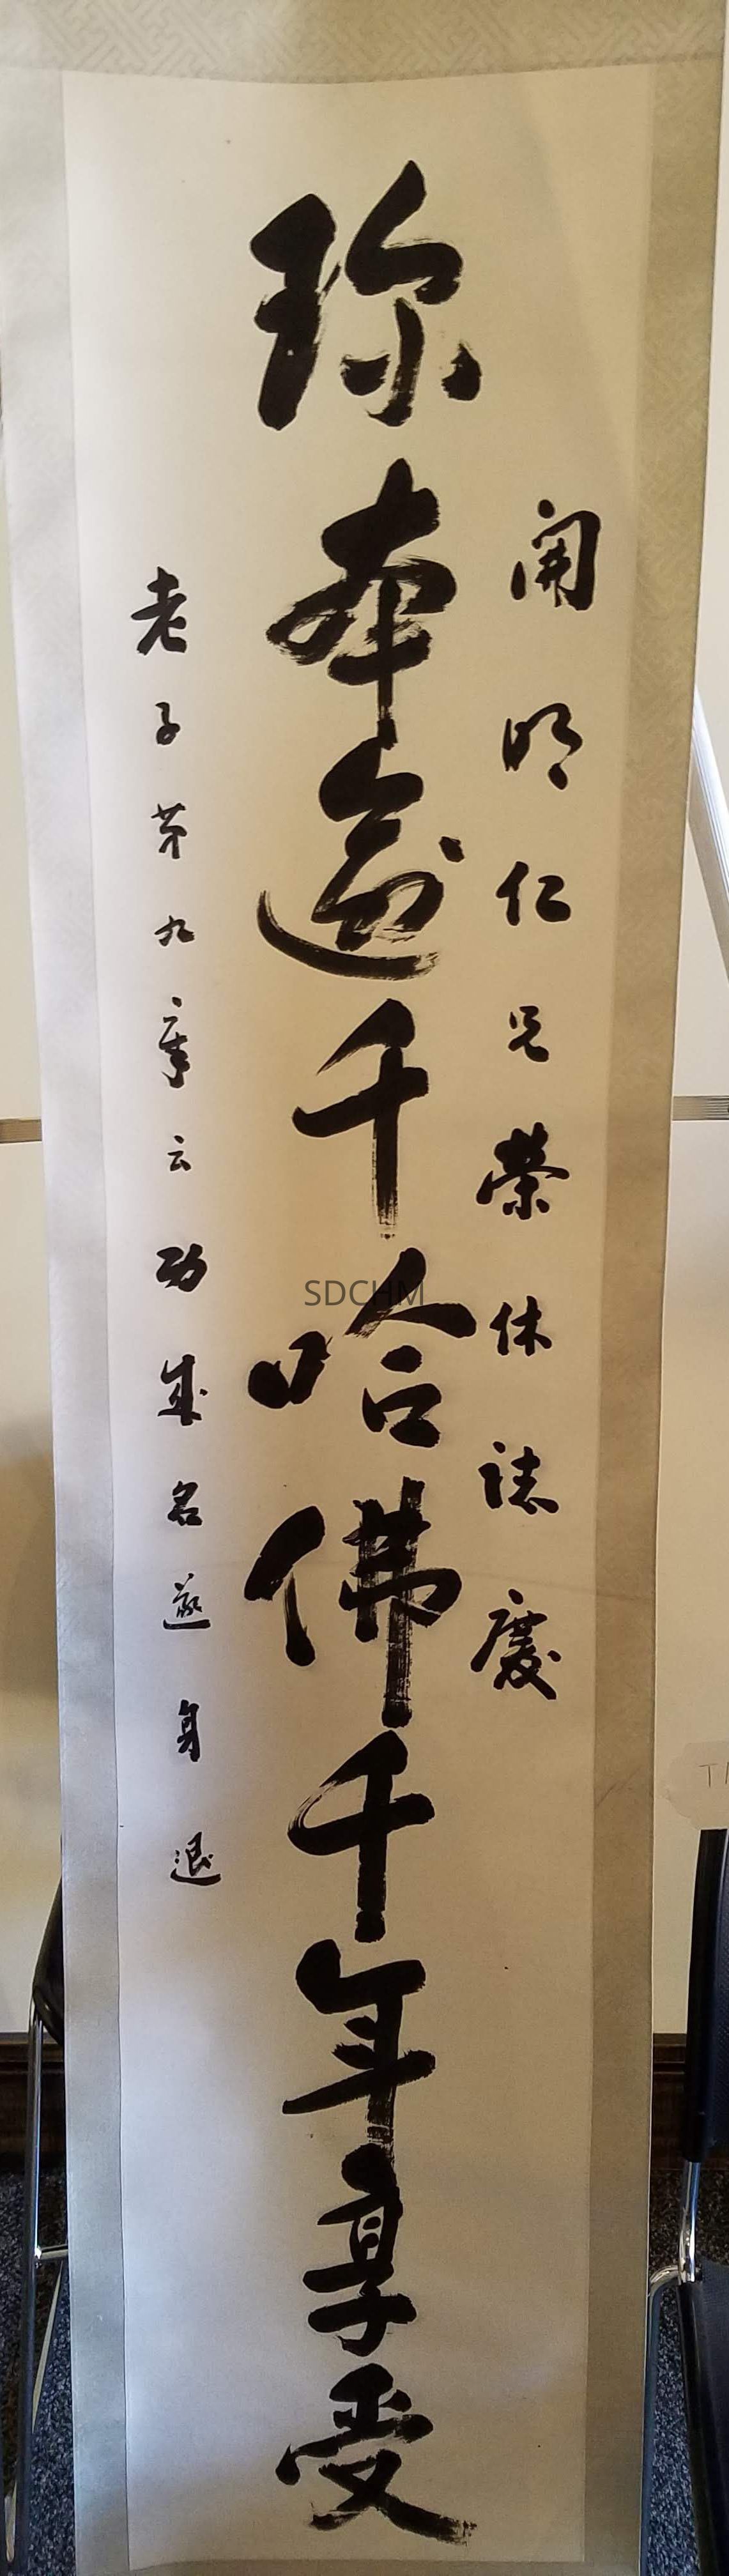 開明仁兄榮休誌慶
珎本逾千哈佛千年享受
老子第九章云功成名遂身退
SDCHM